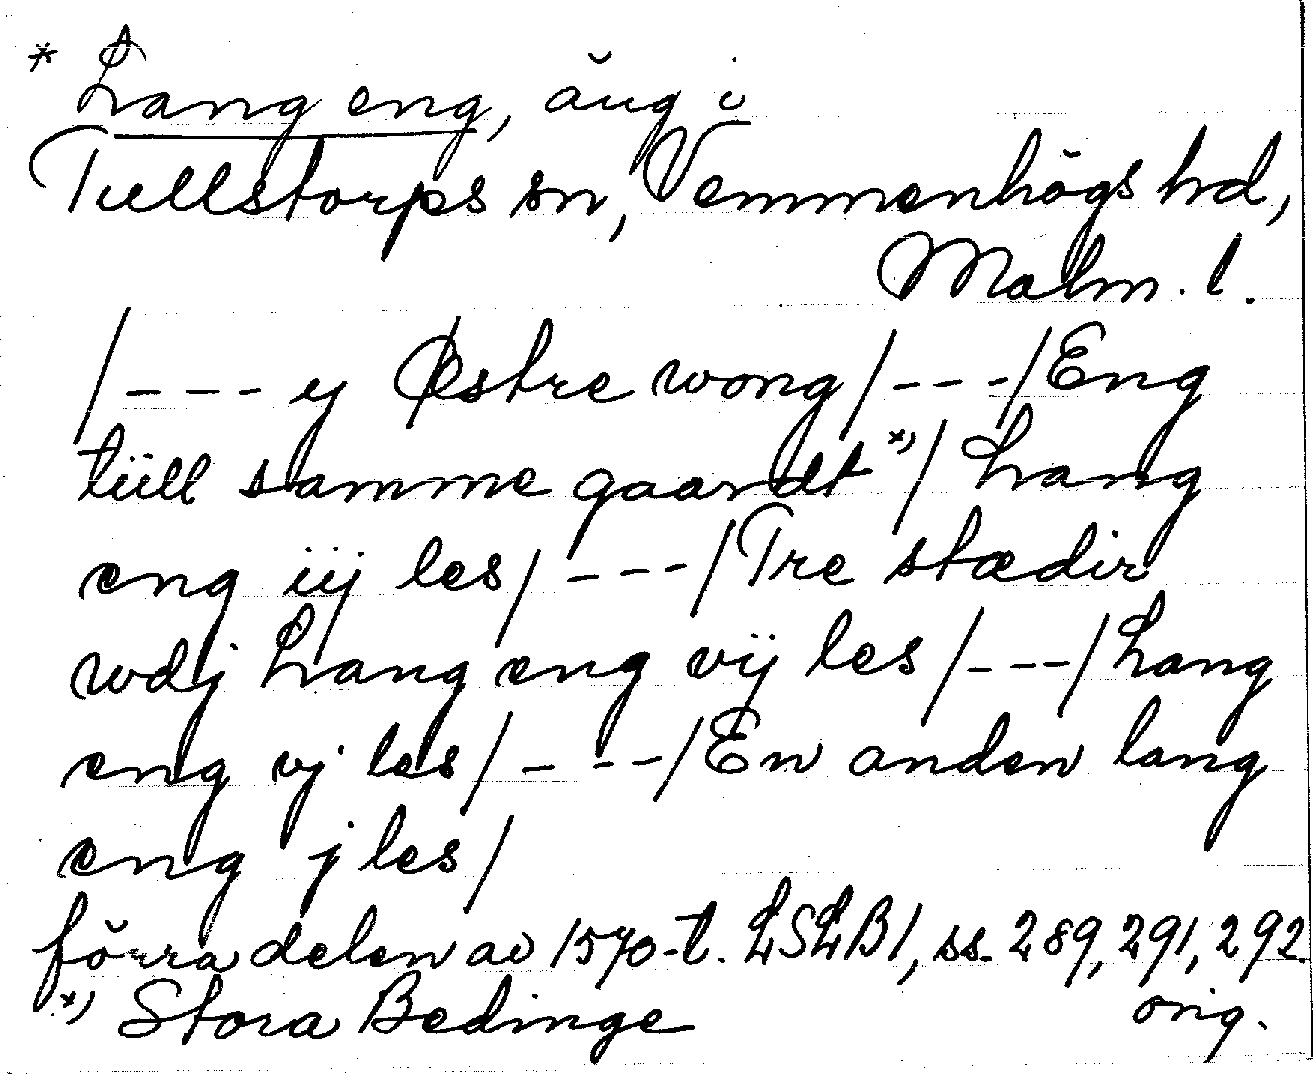 * Lang eng, äng i
Tullstorps sn, Vemmenhögs hd,
Malm. l.
/--- y Østre wong/---/Eng
tüll samme gaardt *)/ Lang
eng iij les/---/Tre stædir
wdj Lang eng vij les/---/Lang
eng vj les/---/En anden lang
eng j les/
förra delen av 1570-t. LSLB1, ss. 289, 291, 292.
orig.
*) Stora Bedinge